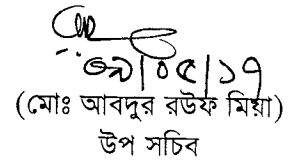 ০৯/০৫/১৭
(মোঃ আবদুর রউফ মিয়া)
উপ সচিব